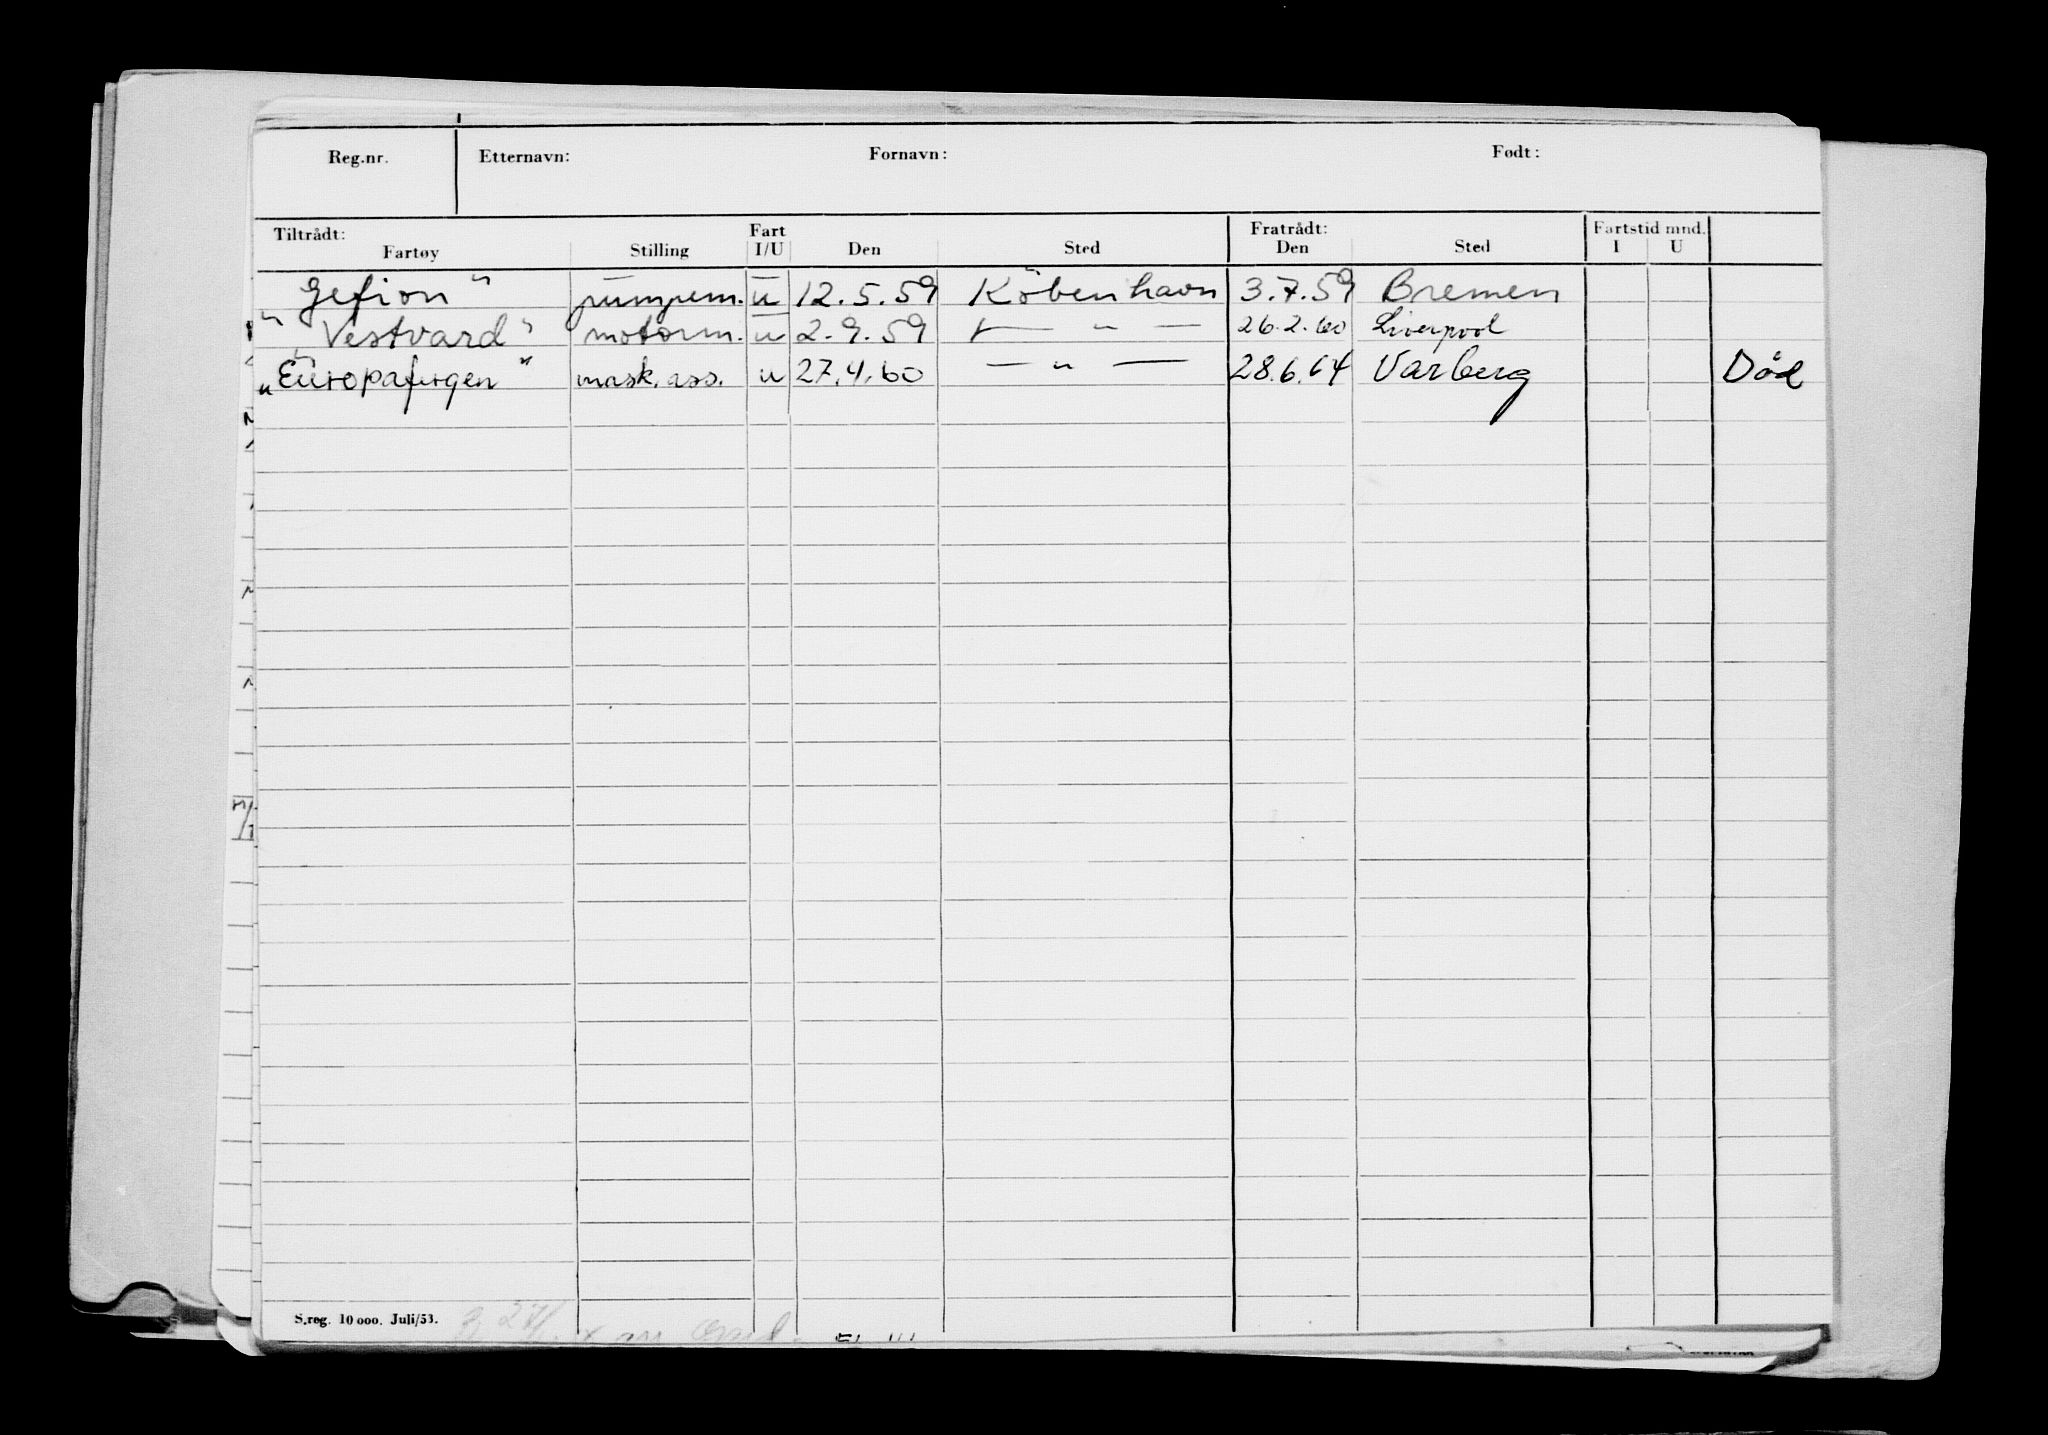 Reg.nr. Etternavn: Fornavn: Født:
Tiltrådt: Fart Fratrådt: Fartstid mnd.
Fartøy Stilling I/U Den Sted Den Sted I U
"Gefion" pumpem. u 12.5.59 Köbenhavn 3.7.59 Bremen
"Vestvard" motorm. u 2.9.59 — " — 26.2.60 Liverpool
"Europafrgen" mask. ass. u 27.4.60 — " — 28.6.64 Varberg Död
S.reg. 10 000. Juli/53.